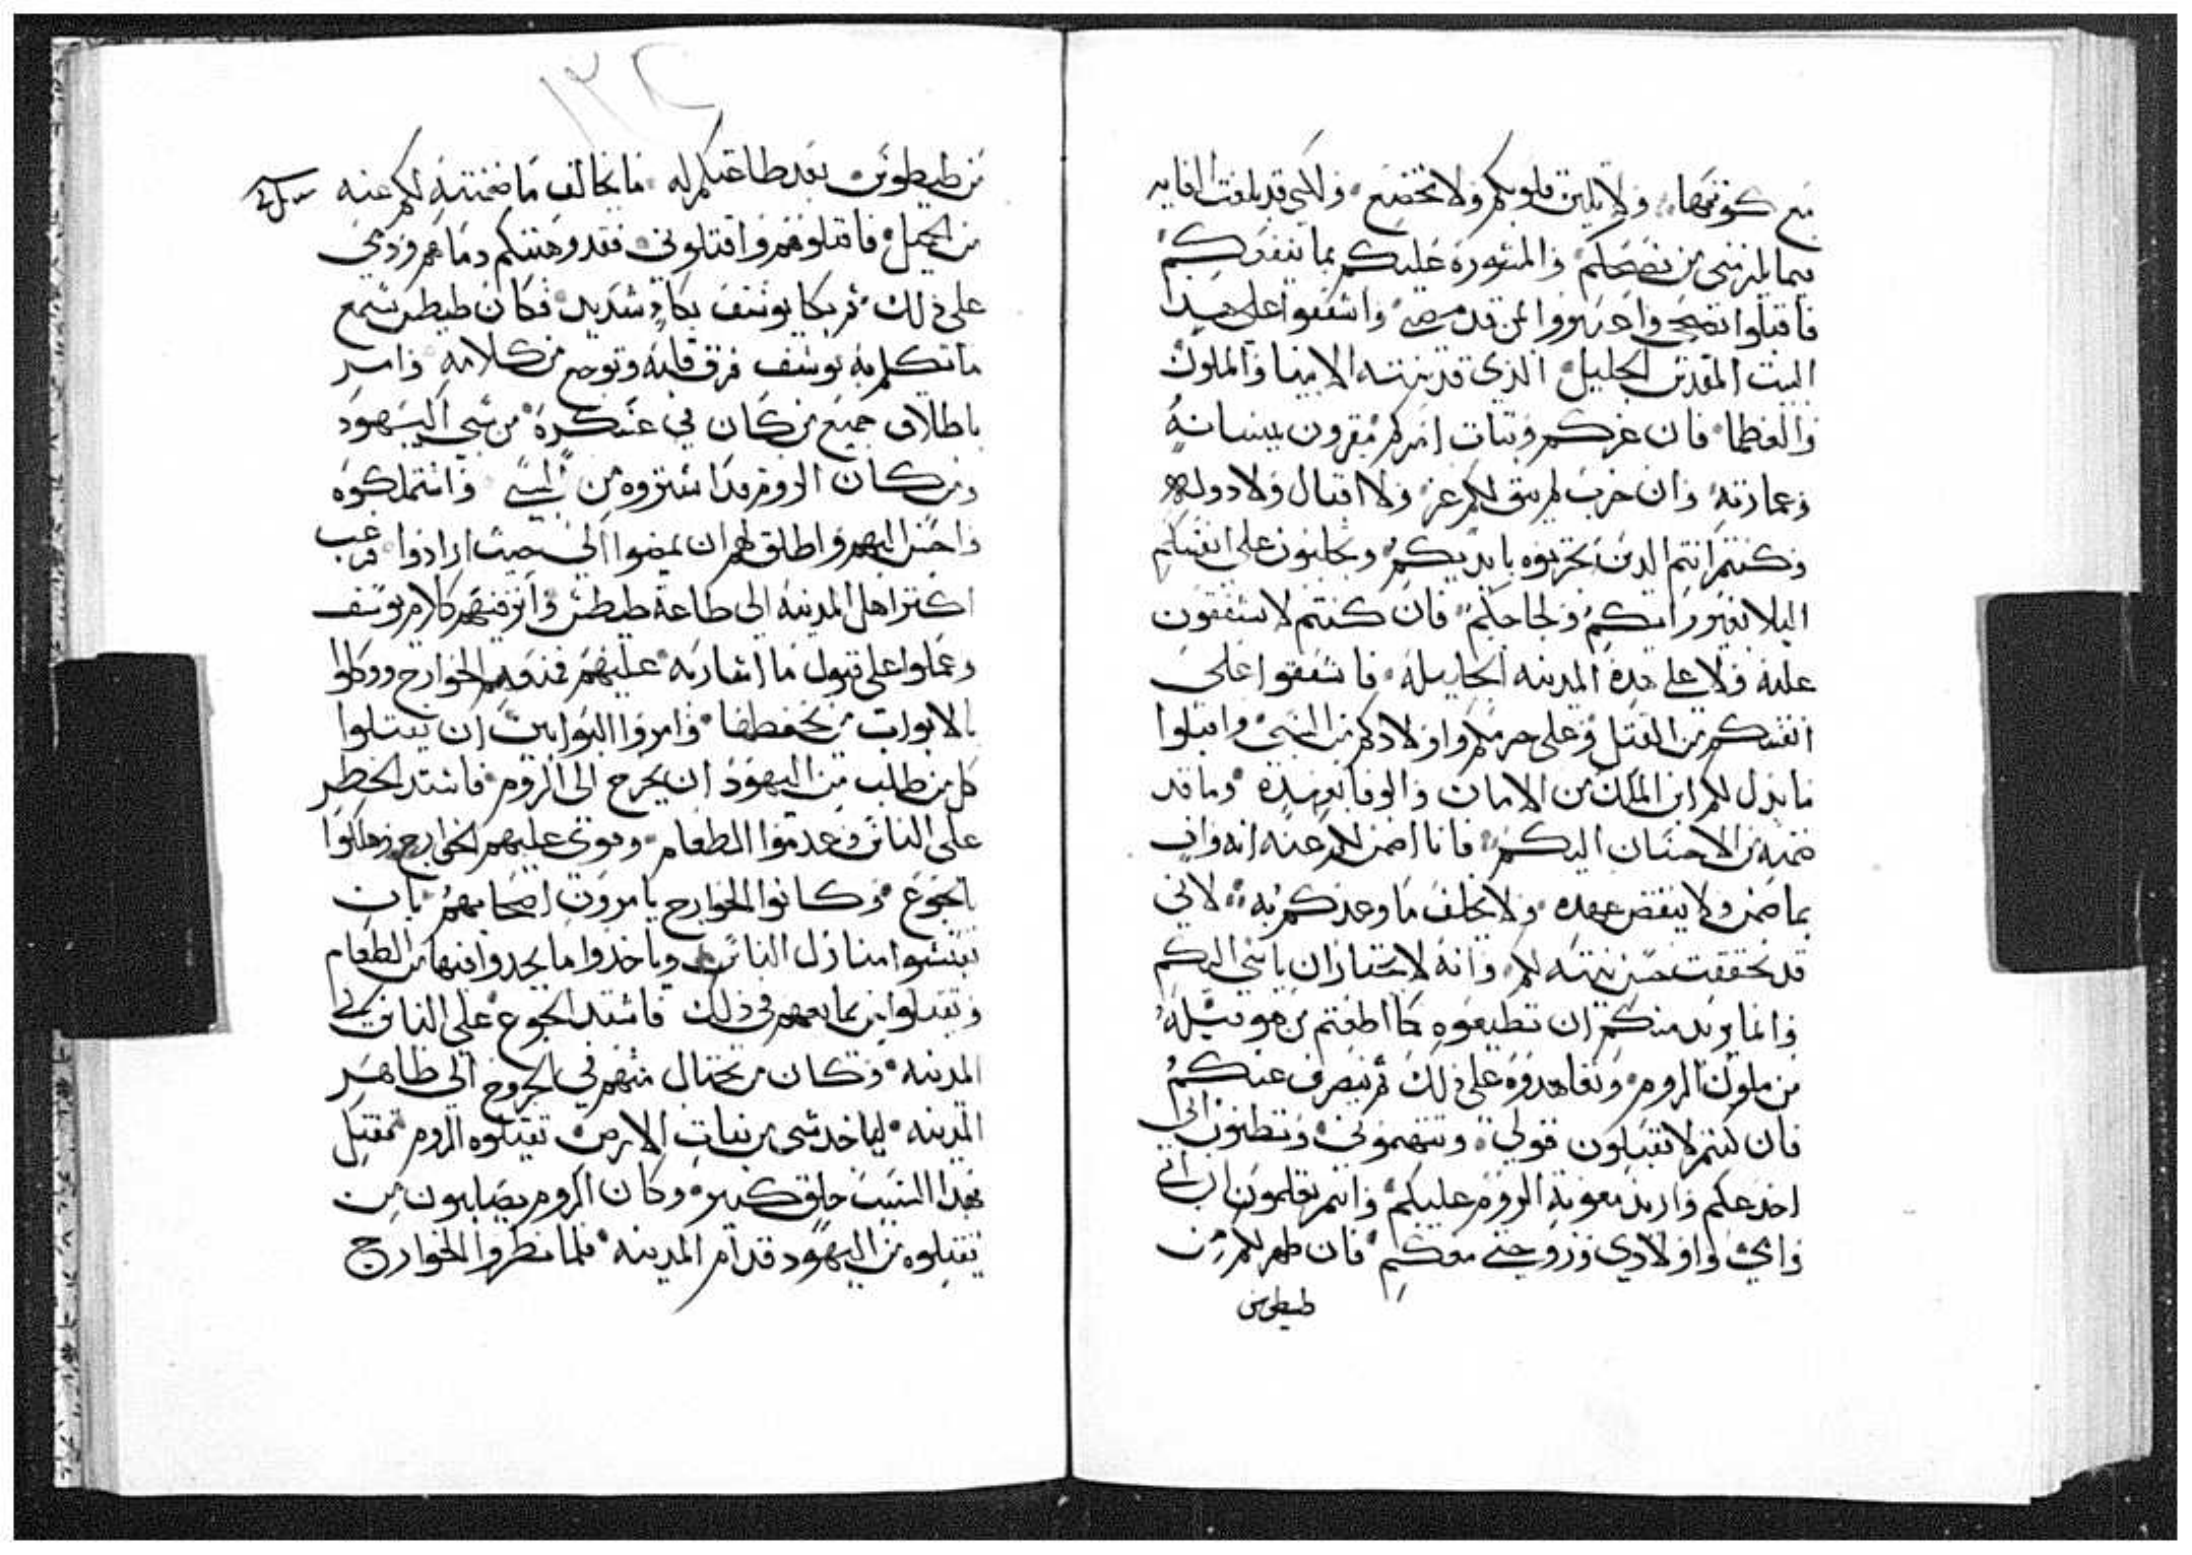 مع كونها ولا تلين قلوبكم ولا تخضع ولكني قد بلغت الغايه
فيما لزمني من نصحكم والمشوره عليكم بما ينفعكم
فاقبلوا نصحي واعتبروا بمن قد مضى واشفقوا على هدا
البيت المقدس الجليل الذي قد بنته الانبيا والملوك
والعظما فان عزكم وثبات امركم مقرون ببنيانه
وعمارته وان خرب لم يبق لكم عز ولا اقبال ولا دوله
وكنتم انتم الدين تخربوه بايديكم وتجلبون على انفسكم
البلا بغير رايكم ولجاجكم فان كنتم لا تشفقون
عليه ولا على هده المدينه الجليله فاشفقوا على
انفسكم من القتل وعلى حرمكم واولادكم من السبي واقبلوا
ما بدل لكم ابن الملك من الامان والوفا بعهده وما قد
ضمنه من الاحسان اليكم فانا اضمن لكم عنه انه واف
بما ضمن ولا ينقض عهده ولا يخلف ما وعدكم به لاني
قد تحققت حسن نيته لكم وانه لا يختار ان ياسي اليكم
وانما يريد منكم ان تطيعوه كما اطعتم من هو قبله
من ملوك الروم وتعاهدوه على ذلك ثم ينصرف عنكم
فان كنتم لا تقبلون قولي وتتهموني وتظنون اني
اخدعكم واريد معونة الروم عليكم وانتم تعلمون ان ابي
وامي واولادي وزوجتي معكم فان ظهر لكم من
طيطوس
١٣٤
من طيطوس بعد طاعتكم له ما يخالف ما ضمنته لكم عنه
من الجميل فاقتلوهم واقتلوني فقد وهبتكم دماهم ودمي
على ذلك ثم بكا يوسف بكاء شديد فكان طيطس يسمع
ما تكلم به يوسف فرق قلبه وتوجع من كلامه وامر
باطلاق جميع من كان في عسكره من سبي اليهود
ومن كان الروم قد اشتروه من السبي واستملكوه
واحسن اليهم واطلق لهم ان يمضوا الى حيث ارادوا فرغب
اكثر اهل المدينه الى طاعة طيطس كلام يوسف
وعملوا على قبول ما اشار به عليهم فمنعهم الخوارج ووكلوا
بالابواب من يحفظها وامروا البوابين ان يقتلوا
كل من طلب من اليهود ان يخرج الى الروم فاشتد الحصر
على الناس وعدموا الطعام وقوي عليهم الخوارج وهلكوا
بالجوع وكانوا الخوارج يامرون اصحابهم بان
يفتشوا منازل الناس وياخدوا ما يجدوا فيها من الطعام
ويقتلوا من يمانعهم في ذلك فاشتد الجوع على الناس في
المدينه وكان من يحتال منهم في الخروج الى ظاهر
المدينه لياخد شي من نبات الارض تقتلوه الروم فقتل
بهدا السبب خلق كبير وكان الروم يصلبون من
يقتلوه من اليهود قدام المدينه فلما نظروا الخوارج